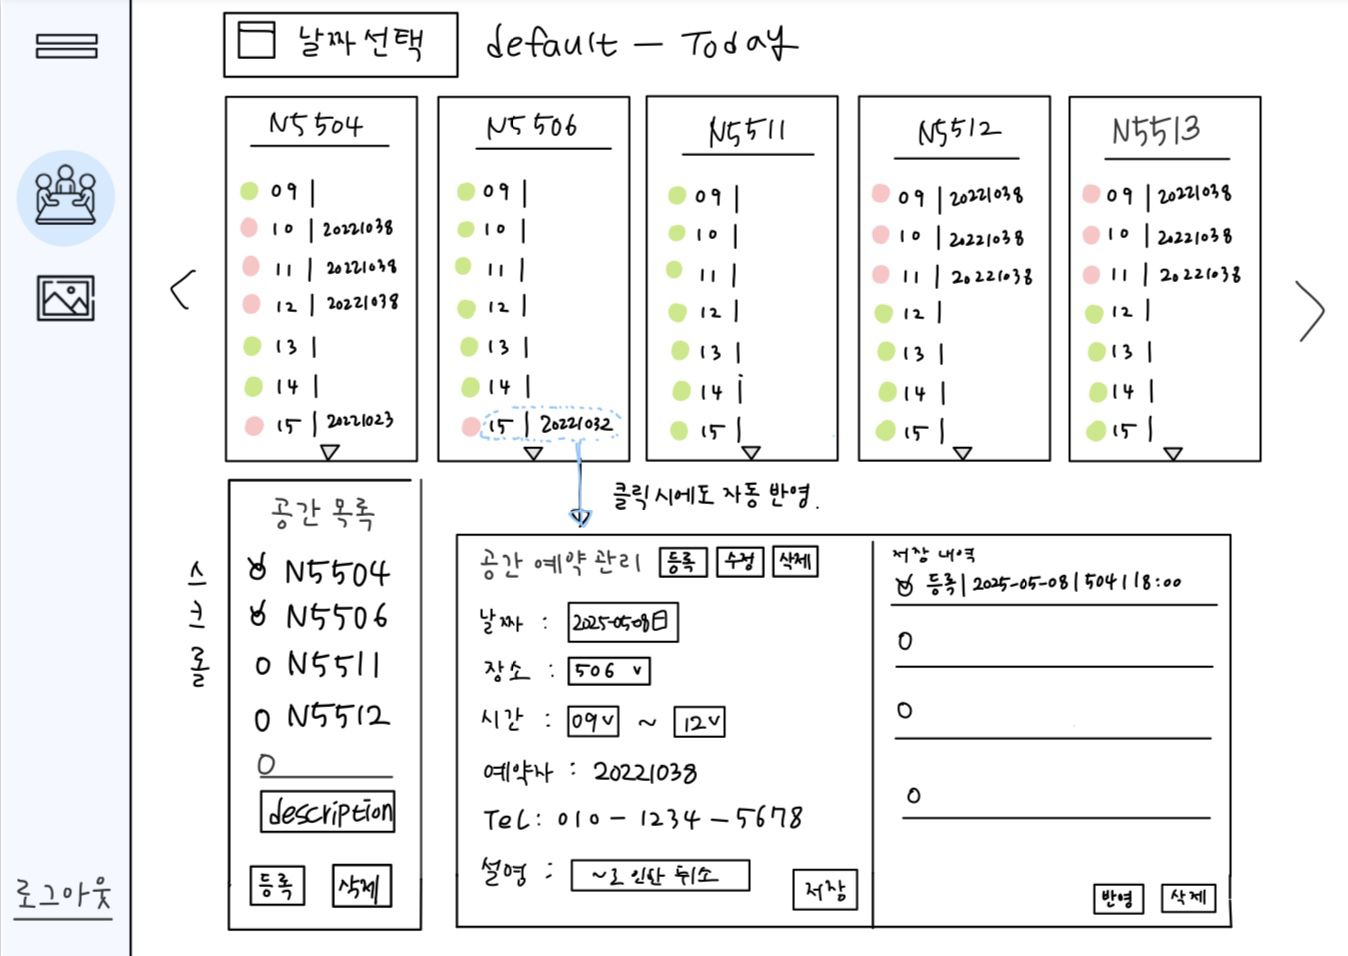 날짜선택 default - Today
N5504
09 |
10 | 20221038
11 | 20221038
12 | 20221038
13 |
14 |
15 | 20221023
N5506
09 |
10 |
11 |
12 |
13 |
14 |
15 | 20221032
N5511
09 |
10 |
11 |
12 |
13 |
14 |
15 |
N5512
09 | 20221038
10 | 20221038
11 | 20221038
12 |
13 |
14 |
15 |
N5513
09 | 20221038
10 | 20221038
11 | 20221038
12 |
13 |
14 |
15 |
<
>
클릭시에도 자동 반영.
스크롤
공간 목록
N5504
N5506
N5511
N5512
description
등록 삭제
공간 예약 관리 등록 수정 삭제
날짜 : 2025-05-08
장소 : 506 v
시간 : 09 v ~ 12 v
예약자 : 20221038
Tel: 010-1234-5678
설명 : ~로 인한 취소
저장
저장 내역
등록|2025-05-08|504|18:00
반영 삭제
로그아웃